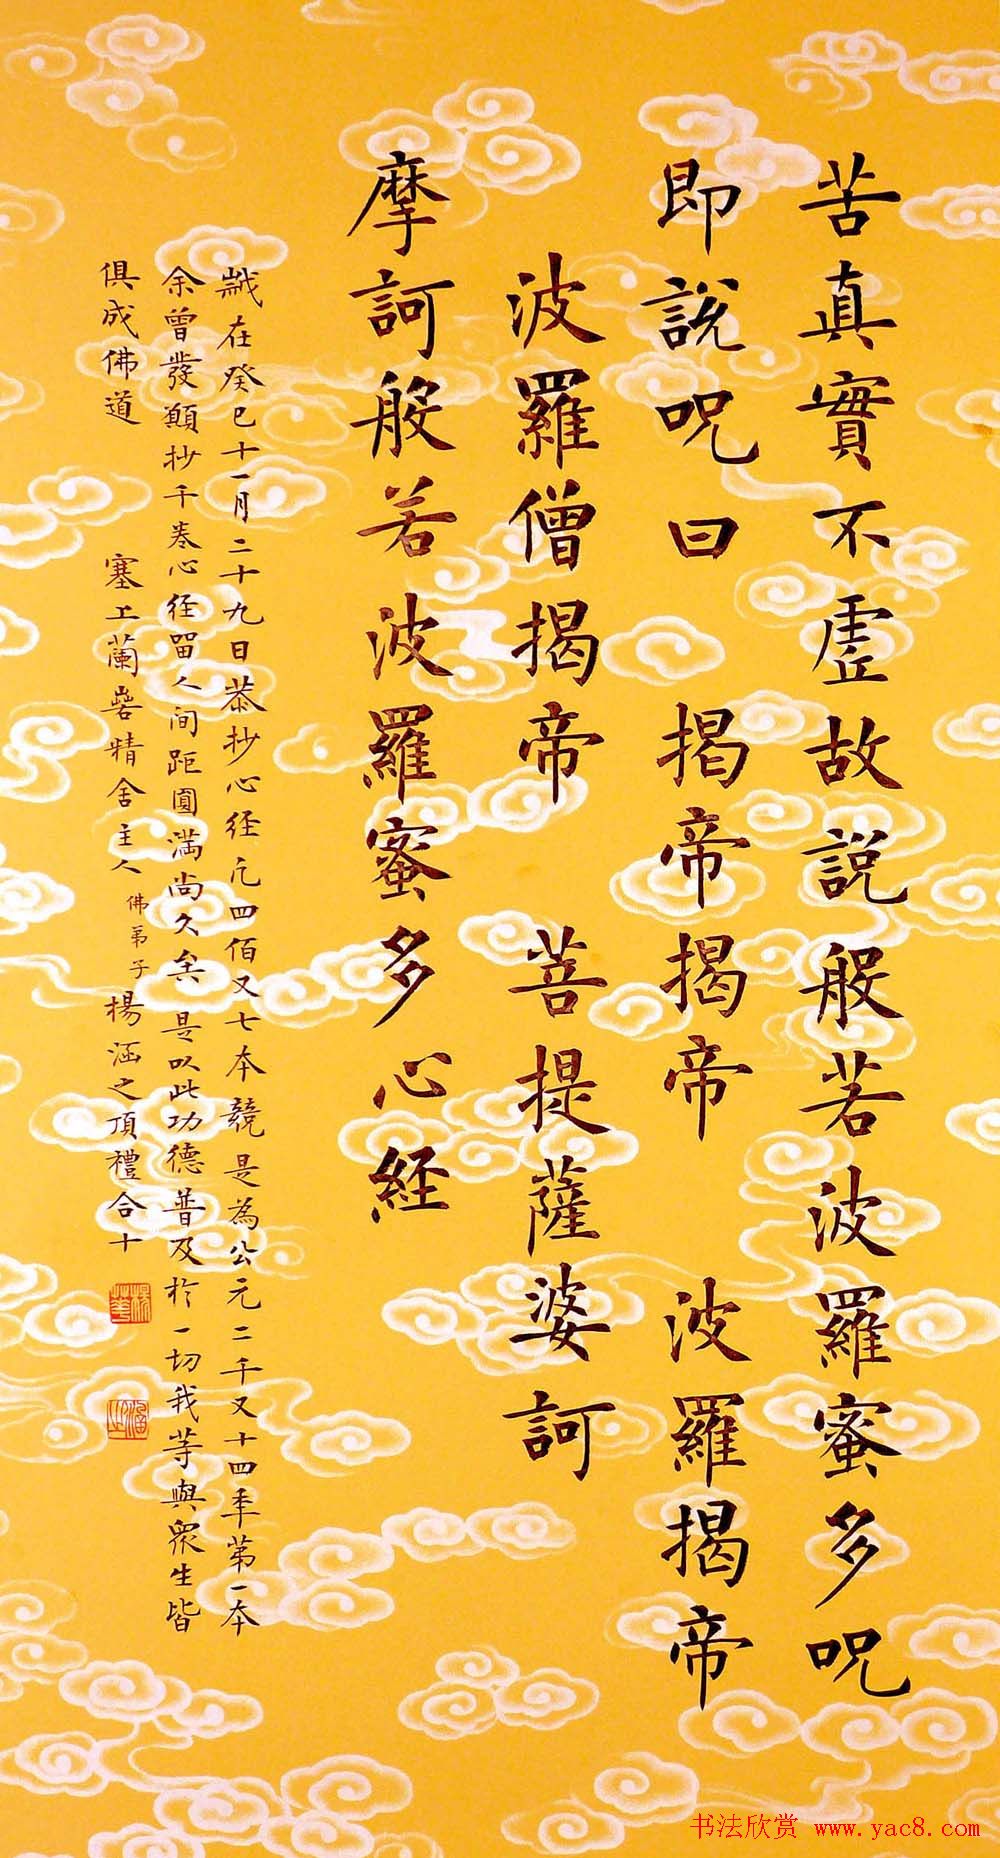 苦真實不虛故説般若波羅蜜多呪
即説呪曰 揭帝揭帝 波羅揭帝
波羅僧揭帝 菩提薩婆訶
摩訶般若波羅蜜多心経
歲在癸巳十一月二十九日恭抄心経凢四佰又七本競是為公元二千又十四季第一本
余曾發願抄千卷心经留人间距圓滿尚久矣是以此功德普及於一切我等與眾生皆
俱成佛道 塞上蘭若精舍主人佛弟子楊涵之頂禮合十
书法欣赏 www.yac8.com